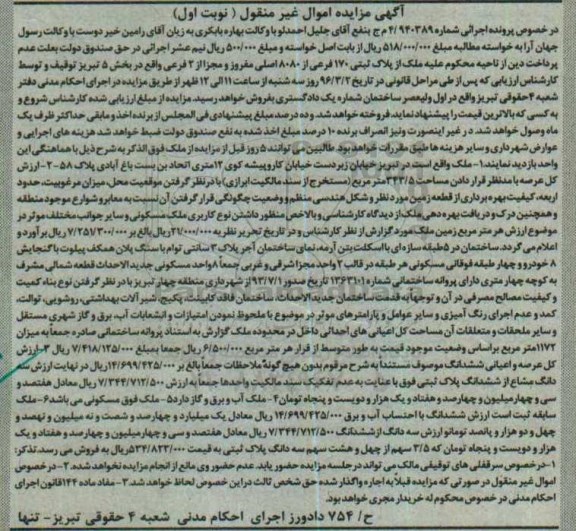 آگهی مزایده اموال غیر منقول ( نوبت اول)
در خصوص پرونده اجرائی شماره ۹۴۰۳۸۹/ ۴ ج م بنفع آقای جلیل احمدلو با وکالت بهاره بابکری به زیان آقای رامین خیر دوست با وکالت رسول
جهان آرا به خواسته مطالبه مبلغ ۵۱۸/۰۰۰/۰۰۰ ریال از بابت اصل خواسته و مبلغ ۵۰۰/۰۰۰ ریال نیم عشر اجرائی در حق صندوق دولت بعلت عدم
پرداخت دین از ناحیه محکوم علیه ملک از پلاک ثبتی ۱۷۰ فرعی از ۸۰۸۰ اصلی مفروز و مجزا از ۲ فرعی واقع در بخش ۵ تبریز توقیف و توسط
کارشناس ارزیابی که پس از طی مراحل قانونی در تاریخ ۹۶/۳/۲ روز سه شنبه از ساعت ۱۱ الی ۱۲ ظهر از طریق مزایده در اجرای احکام مدنی دفتر
شعبه ۴ حقوقی تبریز واقع در اول ولیعصر ساختمان شماره یک دادگستری بفروش خواهد رسید. مزایده از مبلغ ارزیابی شده کارشناس شروع و
به کسی که بالاترین قیمت را پیشنهاد نماید، فروخته خواهد شد، و ده درصد مبلغ پیشنهادی فی المجلس از برنده اخذ و مابقی حداکثر ظرف یک
ماه وصول خواهد شد، در غیر اینصورت ونیز انصراف برنده ۱۰ درصد مبلغ اخذ شده به نفع صندوق دولت ضبط خواهد شد هزینه های اجرایی و
عوارض شهرداری و سایر هزینه ها طبق مقررات خواهد بود. طالبین می توانند ۵ روز قبل از مزایده از ملک فوق الذکر به شرح ذیل با هماهنگی این
واحد بازدید نمایند: ۱- ملک واقع است در تبریز خیابان زبردست خیابان کارو پیشه کوی ۱۲ متری اتحاد بن بست باغ آبادی پلاک ۵۸ -۲- ارزش
کل عرصه با مدنظر قرار دادن مساحت ۳۴۲/۵ متر مربع (مستخرج از سند مالکیت ابرازی) با در نظر گرفتن موقعیت محل، میزان مرغوبیت، حدود
اربعه، کیفیت بهره برداری از قطعه زمین مورد نظر و شکل هندسی منظم و وضعیت چگونگی قرار گرفتن آن نسبت به معابر و شوارع موجود منطقه
و همچنین درک و دریافت بهره دهی ملک از دیدگاه کارشناسی و بالاخص منظور داشتن نوع کاربری ملک مسکونی و سایر جوانب مختلف موثر در
موضوع ارزش هر متر مربع زمین ملک مورد گزارش از نظر کارشناس و در تاریخ تحریر نظریه ریال بالغ بر ریال برآورد و
اعلام می گردد. ساختمان در ۵ طبقه سازه ای با اسکلت بتن آرمه، نمای ساختمان آجر پلاک ۳ سانتی توام با سنگ پلان همکف پیلوت با گنجایش
۸ خودرو و چهار طبقه فوقانی مسکونی هر طبقه در قالب ۲ واحد مجزا شرقی و غربی جمعاً ۸ واحد مسکونی جدید الاحداث قطعه شمالی مشرف
به کوچه چهار متری دارای پروانه ساختمانی شماره تاریخ صدور ۹۳/۷/۱ از شهرداری منطقه چهار تبریز با در نظر گرفتن نوع بناء کمیت
و کیفیت مصالح مصرفی در آن و توجهاً به قدمت ساختمان جدید الاحداث، ساختمان فاقد کابینت، پکیج، شیر آلات بهداشتی، روشویی، توالت،
کمد و عدم اجرای رنگ آمیزی و سایر عوامل و پارامترهای موثر در موضوع با ملحوظ نمودن امتیازات و انشعابات آب، برق و گاز شهری مستقل
و سایر ملحقات و متعلقات آن مساحت کل اعیانی های احداثی داخل در محدوده ملک گزارش به استناد پروانه ساختمانی صادره جمعاً به میزان
۱۱۷۲ متر مربع براساس وضعیت موجود قیمت به طور متوسط از قرار هر متر مربع ۶/۵۰۰/۰۰۰ ریال جمعا بمبلغ ۷/۴۱۸/۱۲۵/۰۰۰ ریال ۳- ارزش
کل عرصه و اعیانی ششدانگ موصوف مستنداً به شرح مرقوم بدون هیچ گونه ملاحظات جمعاً بالغ بر ۱۴/۶۹۹/۴۲۵/۰۰۰ ریال در نهایت ارزش سه
دانگ مشاع از ششدانگ پلاک ثبتی فوق با عنایت به عدم تفکیک سند مالکیت واحدها جمعاً به ارزش ۷/۳۴۴/۷۱۲/۵۰۰ ریال معادل هفتصد و
سی و چهار میلیون و چهارصد و هفتاد و یک هزار و دویست و پنجاه تومان ۴- ملک آب و برق و گاز دارد ۵- ملک فوق مسکونی می باشد ۶- ملک
سابقه ثبت است ارزش ششدانگ با احتساب آب و برق ۱۴/۶۹۹/۴۲۵/۰۰۰ ریال معادل یک میلیارد و چهارصد و شصت و نه میلیون و نهصد و
چهل و دو هزار و پانصد تومان و ارزش سه دانگ از ششدانگ ۷/۳۴۴/۷۱۲/۵۰۰ ریال معادل هفتصد و سی و چهار میلیون و چهارصد و هفتاد و یک
هزار و دویست و پنجاه تومان که ۳/۵ سهم از چهل و هشت سهم سه دانگ پلاک ثبتی به قیمت ریال به فروش می رسد، تذکر:
۱- در خصوص سرقفلی های توقیفی مالک می تواند در جلسه مزایده حضور یابد. عدم حضور وی مانع از انجام مزایده نخواهد شد. ۲- در خصوص
اموال غیر منقول در صورتی که مزایده قبلاً به اجاره واگذار شده حق شخص ثالث در این خصوص لحاظ خواهد شد. ۳- مفاد ماده ۱۴۴ قانون اجرای
احکام مدنی در خصوص محکوم له خریدار مجری خواهد بود.
ح/ ۷۵۴ دادورز اجرای احکام مدنی شعبه ۴ حقوقی تبریز- تنها